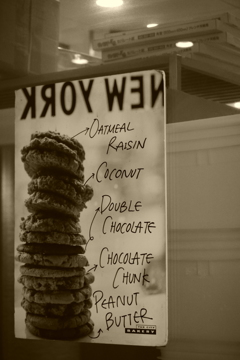 NEW YORK
OATMEAL
RAISIN
COCONUT
DOUBLE
CHOCOLATE
CHOCOLATE
CHUNK
PEANUT
BUTTER